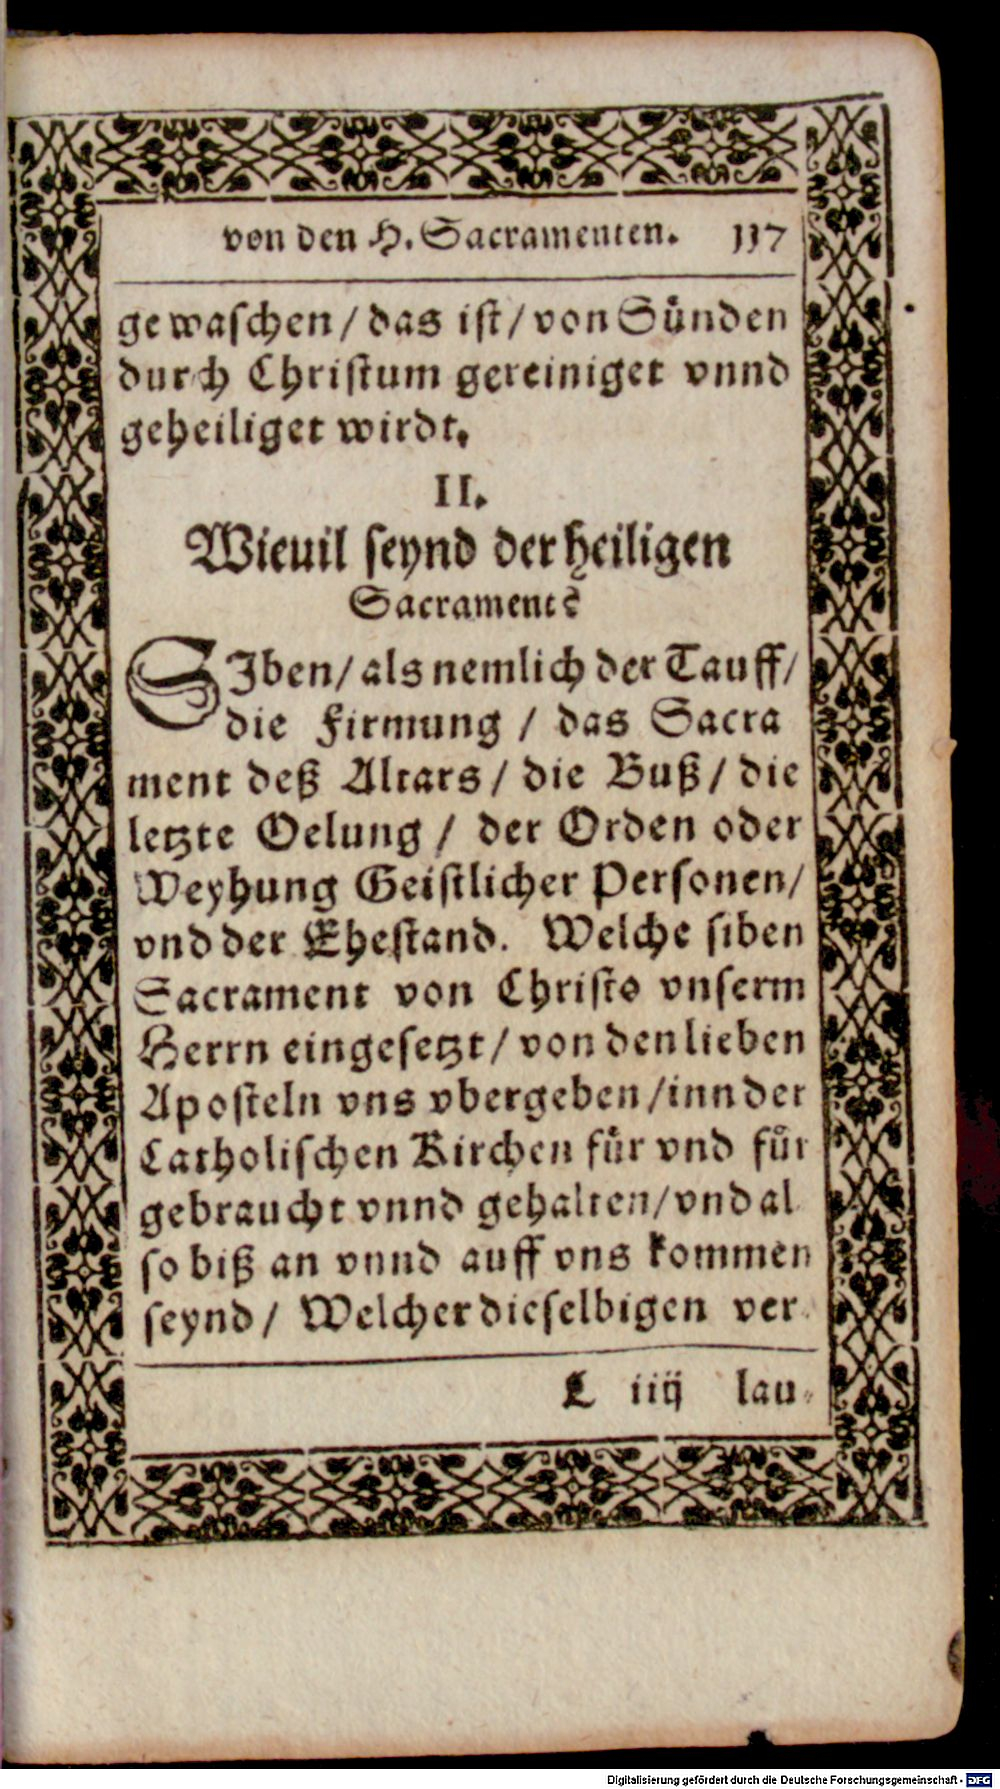 von den H. Sacramenten. 117
gewaſchen / das iſt / von Sünden
durch Chriſtum gereiniget vnnd
geheiliget wirdt.
II.
Wieuil ſeynd der heiligen
Sacrament?
SIben / als nemlich der Tauff /
die Firmung / das Sacra
ment deß Altars / die Buß / die
letzte Oelung / der Orden oder
Weyhung Geiſtlicher Perſonen /
vnd der Eheſtand. Welche ſiben
Sacrament von Chriſto vnſerm
Herrn eingeſetzt / von den lieben
Apoſteln vns vbergeben / inn der
Catholiſchen Kirchen für vnd für
gebraucht vnnd gehalten / vnd al
ſo biß an vnnd auff vns kommen
ſeynd / Welcher dieſelbigen ver-
L iiij lau-
Digitalisierung gefördert durch die Deutsche Forschungsgemeinschaft - DFG